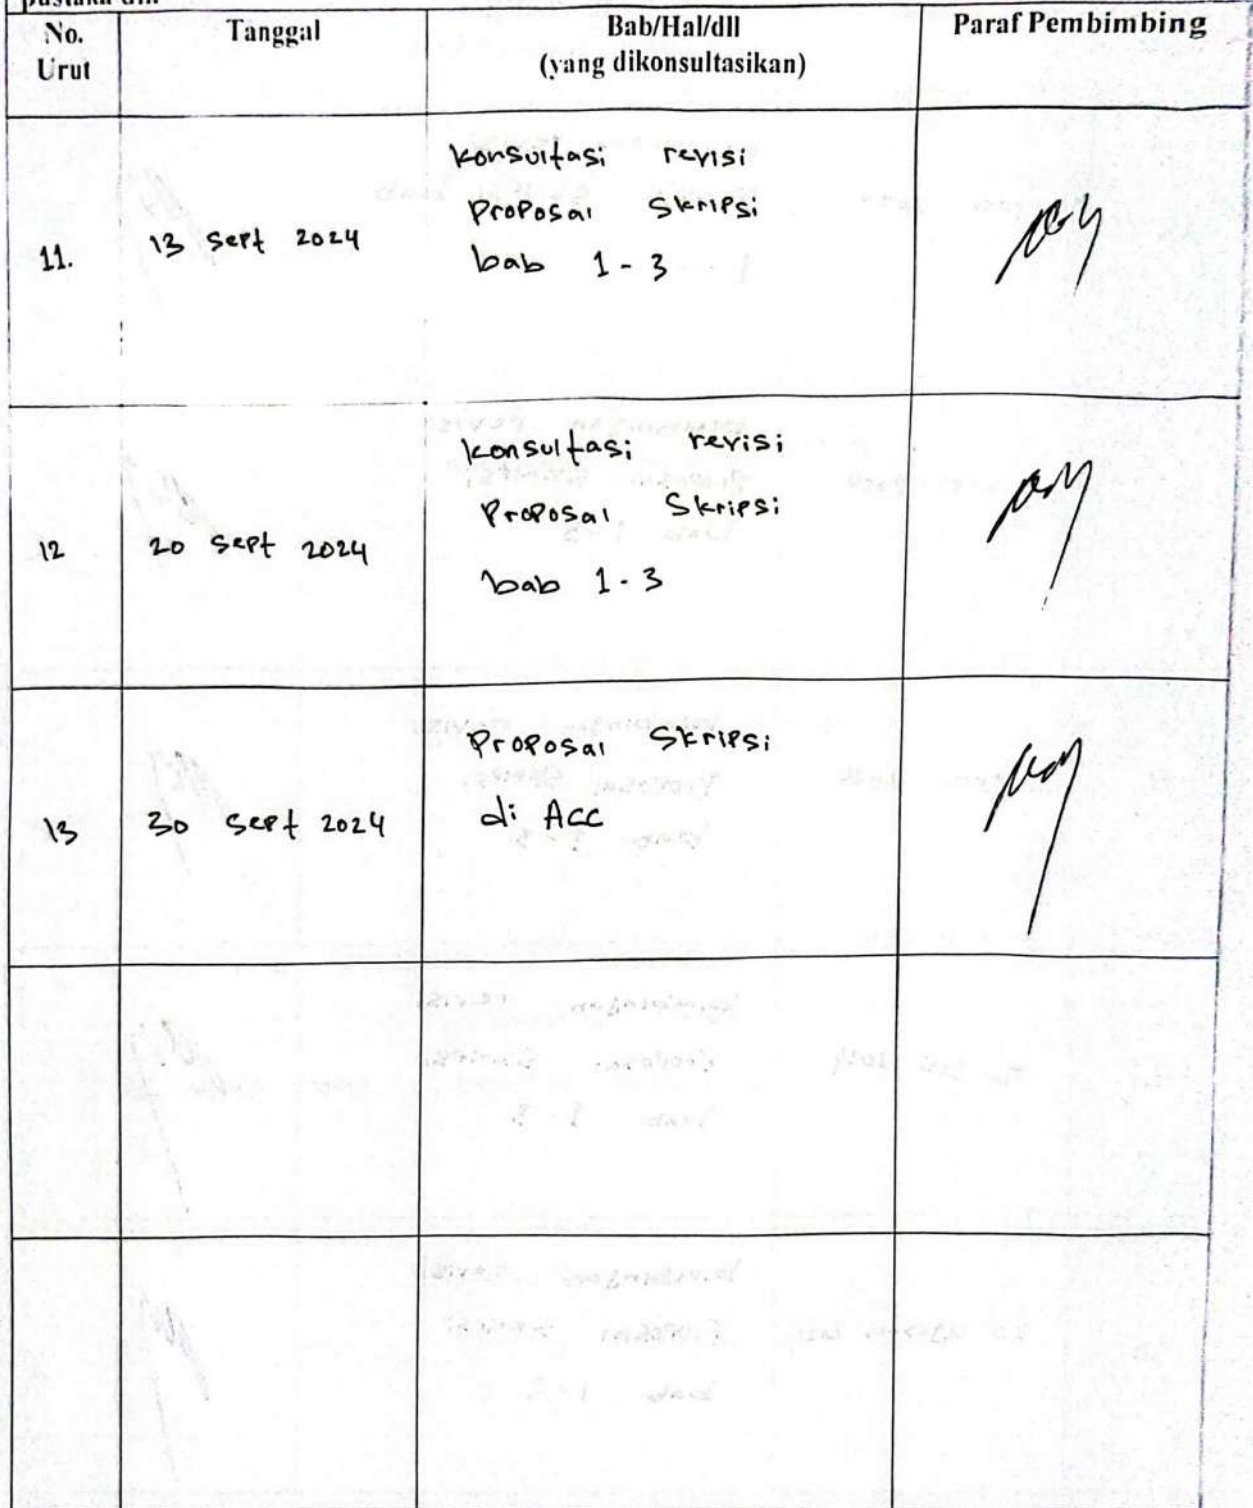 No.
Urut
Tanggal
Bab/Hal/dll
(yang dikonsultasikan)
Paraf Pembimbing
11.
13 Sept 2024
konsultasi revisi
Proposal Skripsi
bab 1 - 3
12
20 Sept 2024
konsultasi revisi
Proposal Skripsi
bab 1 - 3
13
30 Sept 2024
Proposal Skripsi
di Acc